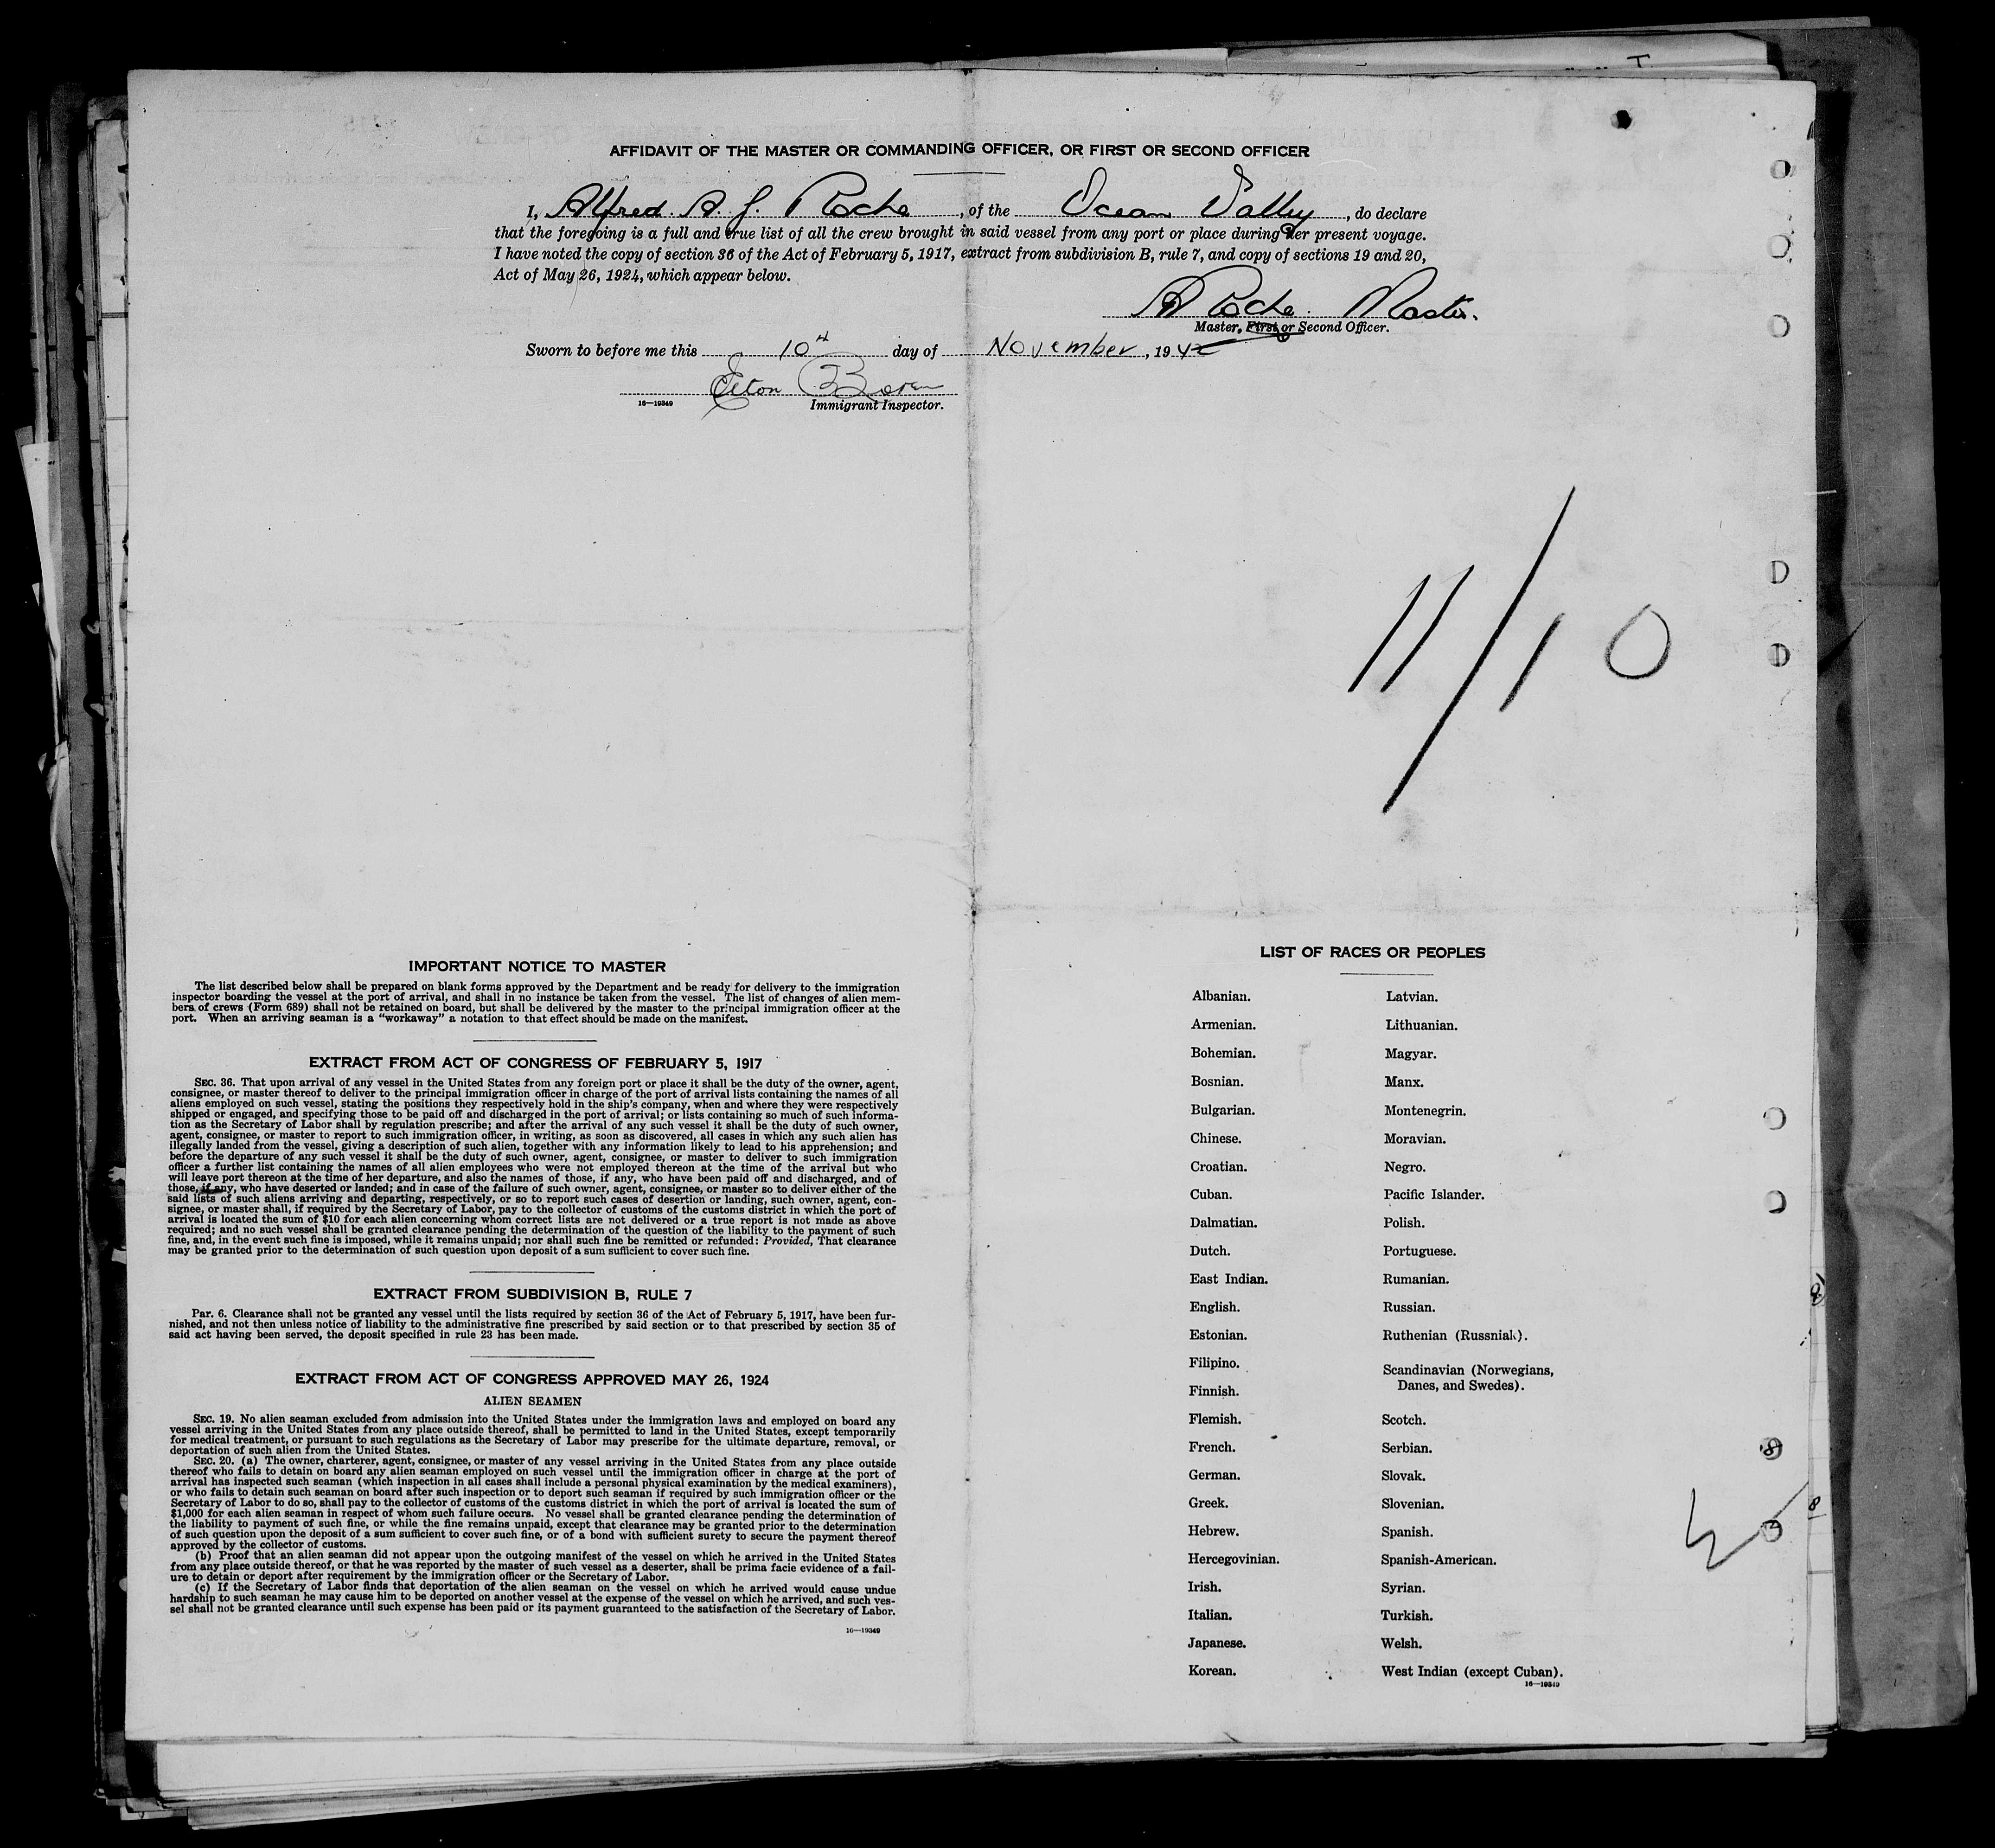 AFFIDAVIT OF THE MASTER OR COMMANDING OFFICER, OR FIRST OR SECOND OFFICER
I, Alfred. A. J. Roche, of the Ocean Valley, do declare
that the foregoing is a full and true list of all the crew brought in said vessel from any port or place during her present voyage.
I have noted the copy of section 36 of the Act of February 5, 1917, extract from subdivision B, rule 7, and copy of sections 19 and 20,
Act of May 26, 1924, which appear below.
A Roche. Master.
Master, First or Second Officer.
Sworn to before me this 10th day of November, 1942
Elton
16—19349 Immigrant Inspector.
11/10
IMPORTANT NOTICE TO MASTER
The list described below shall be prepared on blank forms approved by the Department and be ready for delivery to the immigration
inspector boarding the vessel at the port of arrival, and shall in no instance be taken from the vessel. The list of changes of alien mem-
bers of crews (Form 689) shall not be retained on board, but shall be delivered by the master to the principal immigration officer at the
port. When an arriving seaman is a "workaway" a notation to that effect should be made on the manifest.
EXTRACT FROM ACT OF CONGRESS OF FEBRUARY 5, 1917
SEC. 36. That upon arrival of any vessel in the United States from any foreign port or place it shall be the duty of the owner, agent,
consignee, or master thereof to deliver to the principal immigration officer in charge of the port of arrival lists containing the names of all
aliens employed on such vessel, stating the positions they respectively hold in the ship's company, when and where they were respectively
shipped or engaged, and specifying those to be paid off and discharged in the port of arrival; or lists containing so much of such informa-
tion as the Secretary of Labor shall by regulation prescribe; and after the arrival of any such vessel it shall be the duty of such owner,
agent, consignee, or master to report to such immigration officer, in writing, as soon as discovered, all cases in which any such alien has
illegally landed from the vessel, giving a description of such alien, together with any information likely to lead to his apprehension; and
before the departure of any such vessel it shall be the duty of such owner, agent, consignee, or master to deliver to such immigration
officer a further list containing the names of all alien employees who were not employed thereon at the time of the arrival but who
will leave port thereon at the time of her departure, and also the names of those, if any, who have been paid off and discharged, and of
those, if any, who have deserted or landed; and in case of the failure of such owner, agent, consignee, or master so to deliver either of the
said lists of such aliens arriving and departing, respectively, or so to report such cases of desertion or landing, such owner, agent, con-
signee, or master shall, if required by the Secretary of Labor, pay to the collector of customs of the customs district in which the port of
arrival is located the sum of $10 for each alien concerning whom correct lists are not delivered or a true report is not made as above
required; and no such vessel shall be granted clearance pending the determination of the question of the liability to the payment of such
fine, and, in the event such fine is imposed, while it remains unpaid; nor shall such fine be remitted or refunded: Provided, That clearance
may be granted prior to the determination of such question upon deposit of a sum sufficient to cover such fine.
EXTRACT FROM SUBDIVISION B, RULE 7
Par. 6. Clearance shall not be granted any vessel until the lists required by section 36 of the Act of February 5, 1917, have been fur-
nished, and not then unless notice of liability to the administrative fine prescribed by said section or to that prescribed by section 35 of
said act having been served, the deposit specified in rule 23 has been made.
EXTRACT FROM ACT OF CONGRESS APPROVED MAY 26, 1924
ALIEN SEAMEN
SEC. 19. No alien seaman excluded from admission into the United States under the immigration laws and employed on board any
vessel arriving in the United States from any place outside thereof, shall be permitted to land in the United States, except temporarily
for medical treatment, or pursuant to such regulations as the Secretary of Labor may prescribe for the ultimate departure, removal, or
deportation of such alien from the United States.
SEC. 20. (a) The owner, charterer, agent, consignee, or master of any vessel arriving in the United States from any place outside
thereof who fails to detain on board any alien seaman employed on such vessel until the immigration officer in charge at the port of
arrival has inspected such seaman (which inspection in all cases shall include a personal physical examination by the medical examiners),
or who fails to detain such seaman on board after such inspection or to deport such seaman if required by such immigration officer or the
Secretary of Labor to do so, shall pay to the collector of customs of the customs district in which the port of arrival is located the sum of
$1,000 for each alien seaman in respect of whom such failure occurs. No vessel shall be granted clearance pending the determination of
the liability to payment of such fine, or while the fine remains unpaid, except that clearance may be granted prior to the determination
of such question upon the deposit of a sum sufficient to cover such fine, or of a bond with sufficient surety to secure the payment thereof
approved by the collector of customs.
(b) Proof that an alien seaman did not appear upon the outgoing manifest of the vessel on which he arrived in the United States
from any place outside thereof, or that he was reported by the master of such vessel as a deserter, shall be prima facie evidence of a fail-
ure to detain or deport after requirement by the immigration officer or the Secretary of Labor.
(c) If the Secretary of Labor finds that deportation of the alien seaman on the vessel on which he arrived would cause undue
hardship to such seaman he may cause him to be deported on another vessel at the expense of the vessel on which he arrived, and such ves-
sel shall not be granted clearance until such expense has been paid or its payment guaranteed to the satisfaction of the Secretary of Labor.
16—19349
LIST OF RACES OR PEOPLES
Albanian.
Armenian.
Bohemian.
Bosnian.
Bulgarian.
Chinese.
Croatian.
Cuban.
Dalmatian.
Dutch.
East Indian.
English.
Estonian.
Filipino.
Finnish.
Flemish.
French.
German.
Greek.
Hebrew.
Hercegovinian.
Irish.
Italian.
Japanese.
Korean.
Latvian.
Lithuanian.
Magyar.
Manx.
Montenegrin.
Moravian.
Negro.
Pacific Islander.
Polish.
Portuguese.
Rumanian.
Russian.
Ruthenian (Russniak).
Scandinavian (Norwegians,
Danes, and Swedes).
Scotch.
Serbian.
Slovak.
Slovenian.
Spanish.
Spanish-American.
Syrian.
Turkish.
Welsh.
West Indian (except Cuban).
16—19349